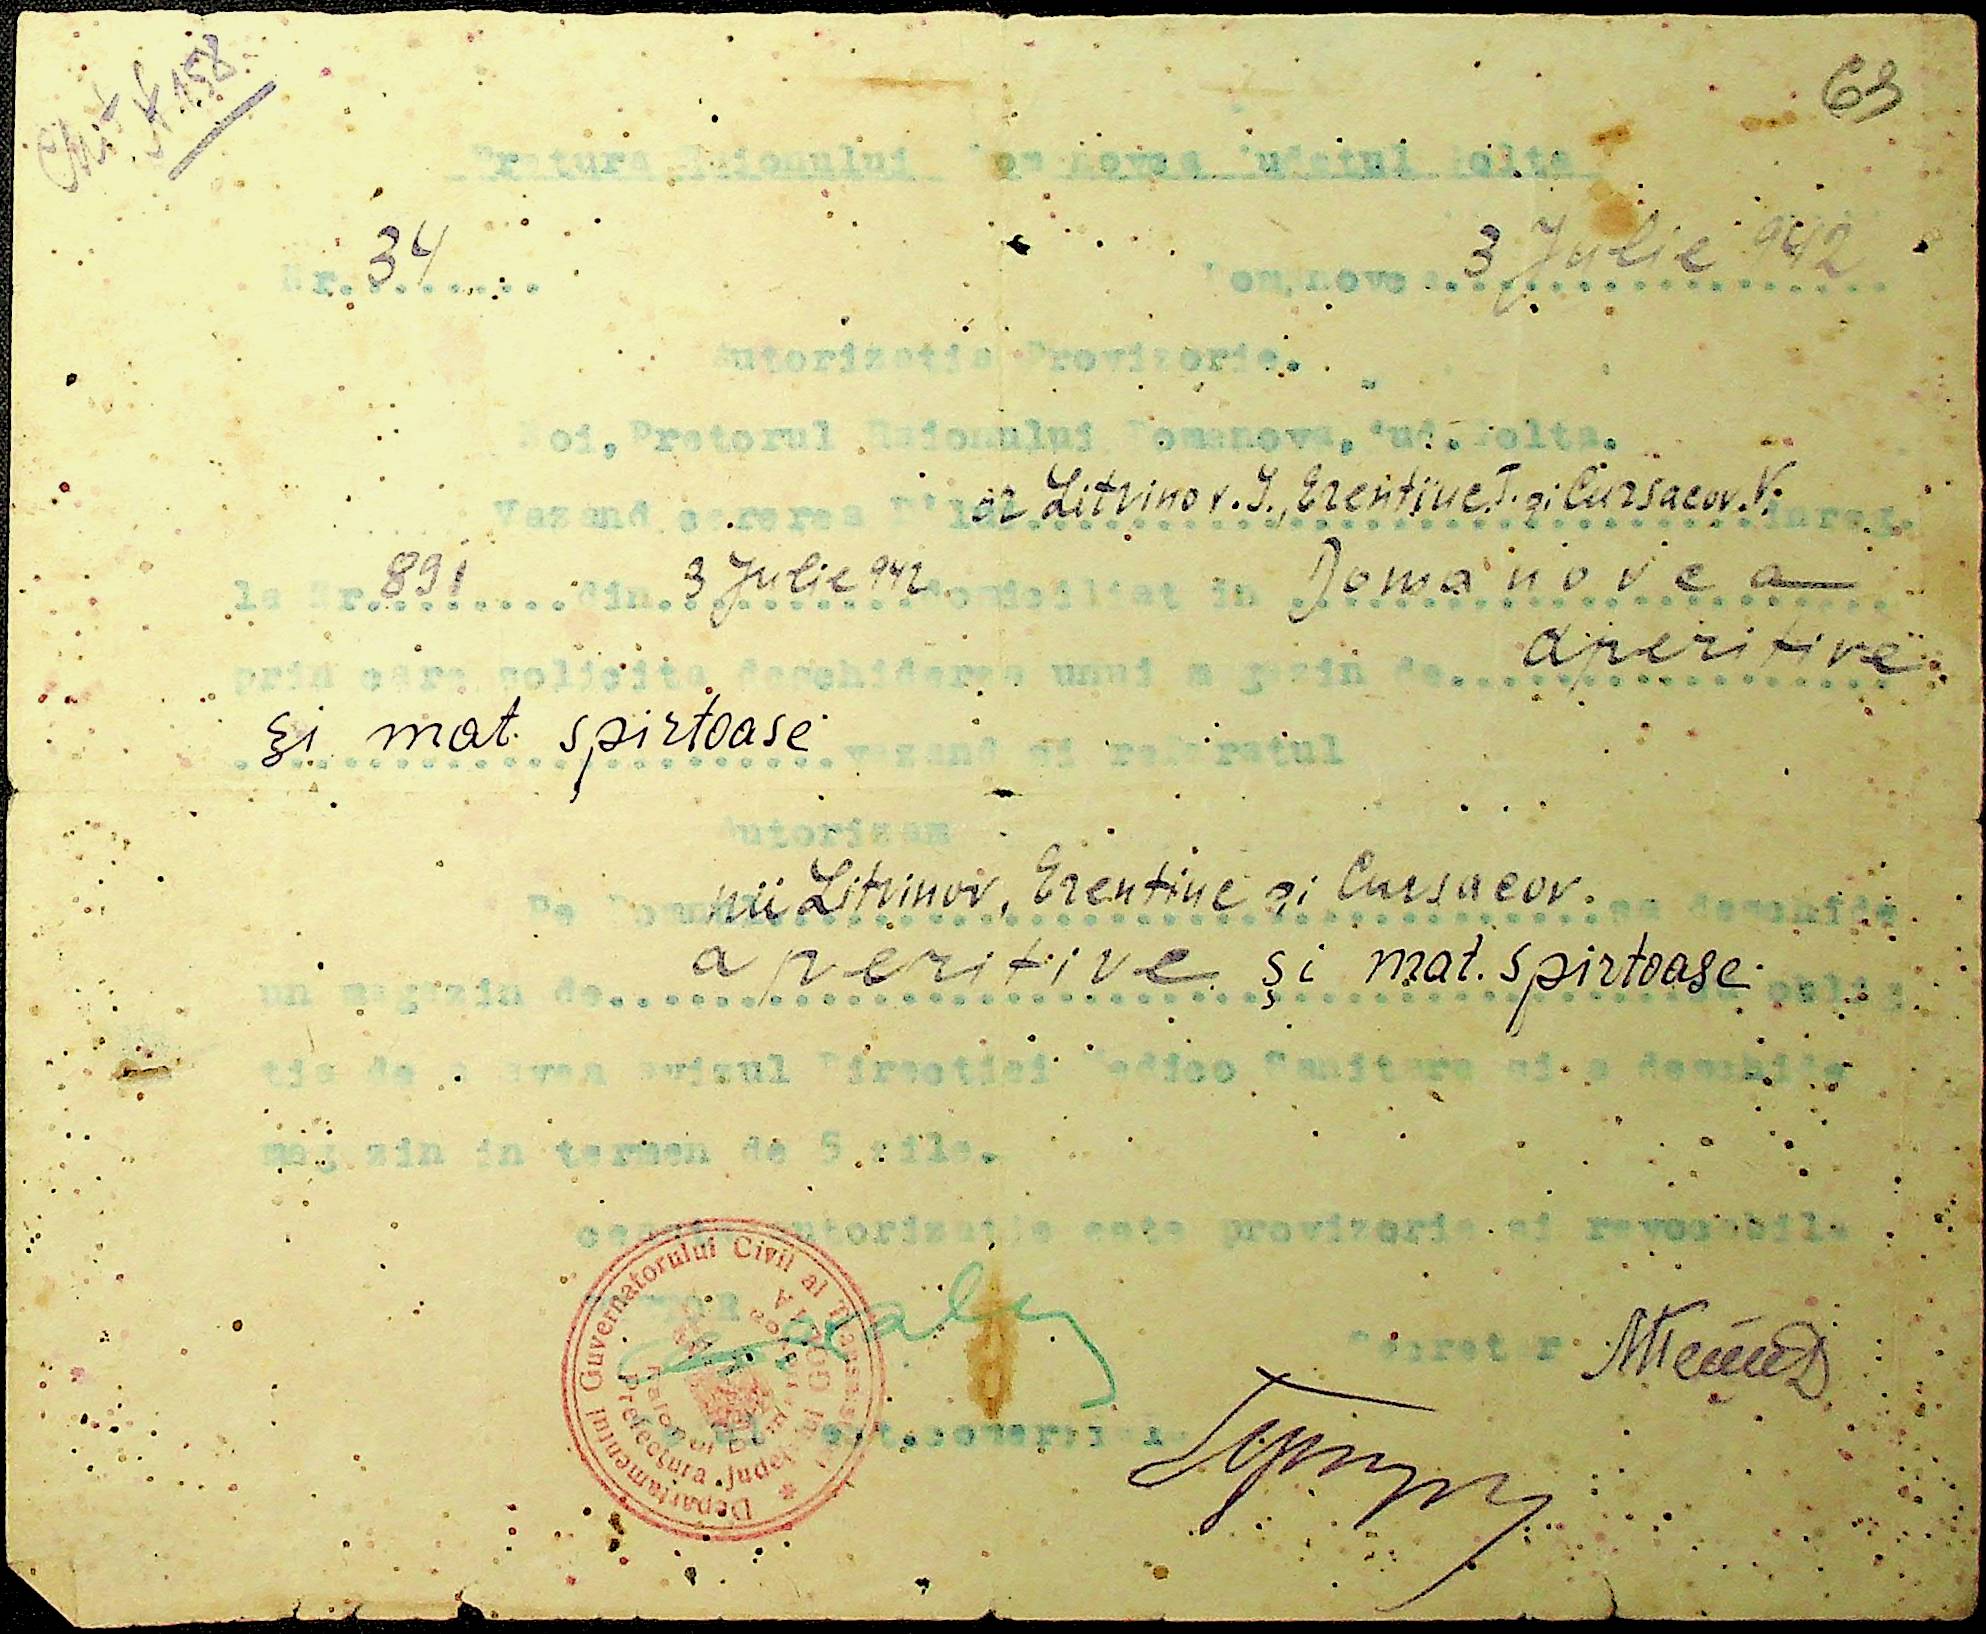 № 158
69
Pretura Raionului Domanovca Judetul Golta
Nr. 34 Domanovca 3 Julie 942
Autorizatie Provizorie.
Noi, Pretorul Raionului Domanova, Jud. Golta.
Vazand cererea D'lui or Litvinov. I., Erentiuc T. și Cursacov. V. inreg.
la Nr. 891 din 3 Julie 942 domiciliat in Domanovca
prin care solicita deschiderea unui magazin de aperitive
și mat. spirtoase vazand si referatul
Autorizam
Pe Domnul nii Litvinov, Erentiuc și Cursacov. sa deschida
un magazin de aperitive și mat. spirtoase cu oblig
tia de a avea avizul Directiei Medico Sanitare si a deschide
magazin in termen de 5 zile.
autorizatie este provizorie si revocabila
Pretor
Secretar
Departamentul Guvernatorului Civil al Transnistriei
Prefectura Județului GOLTA